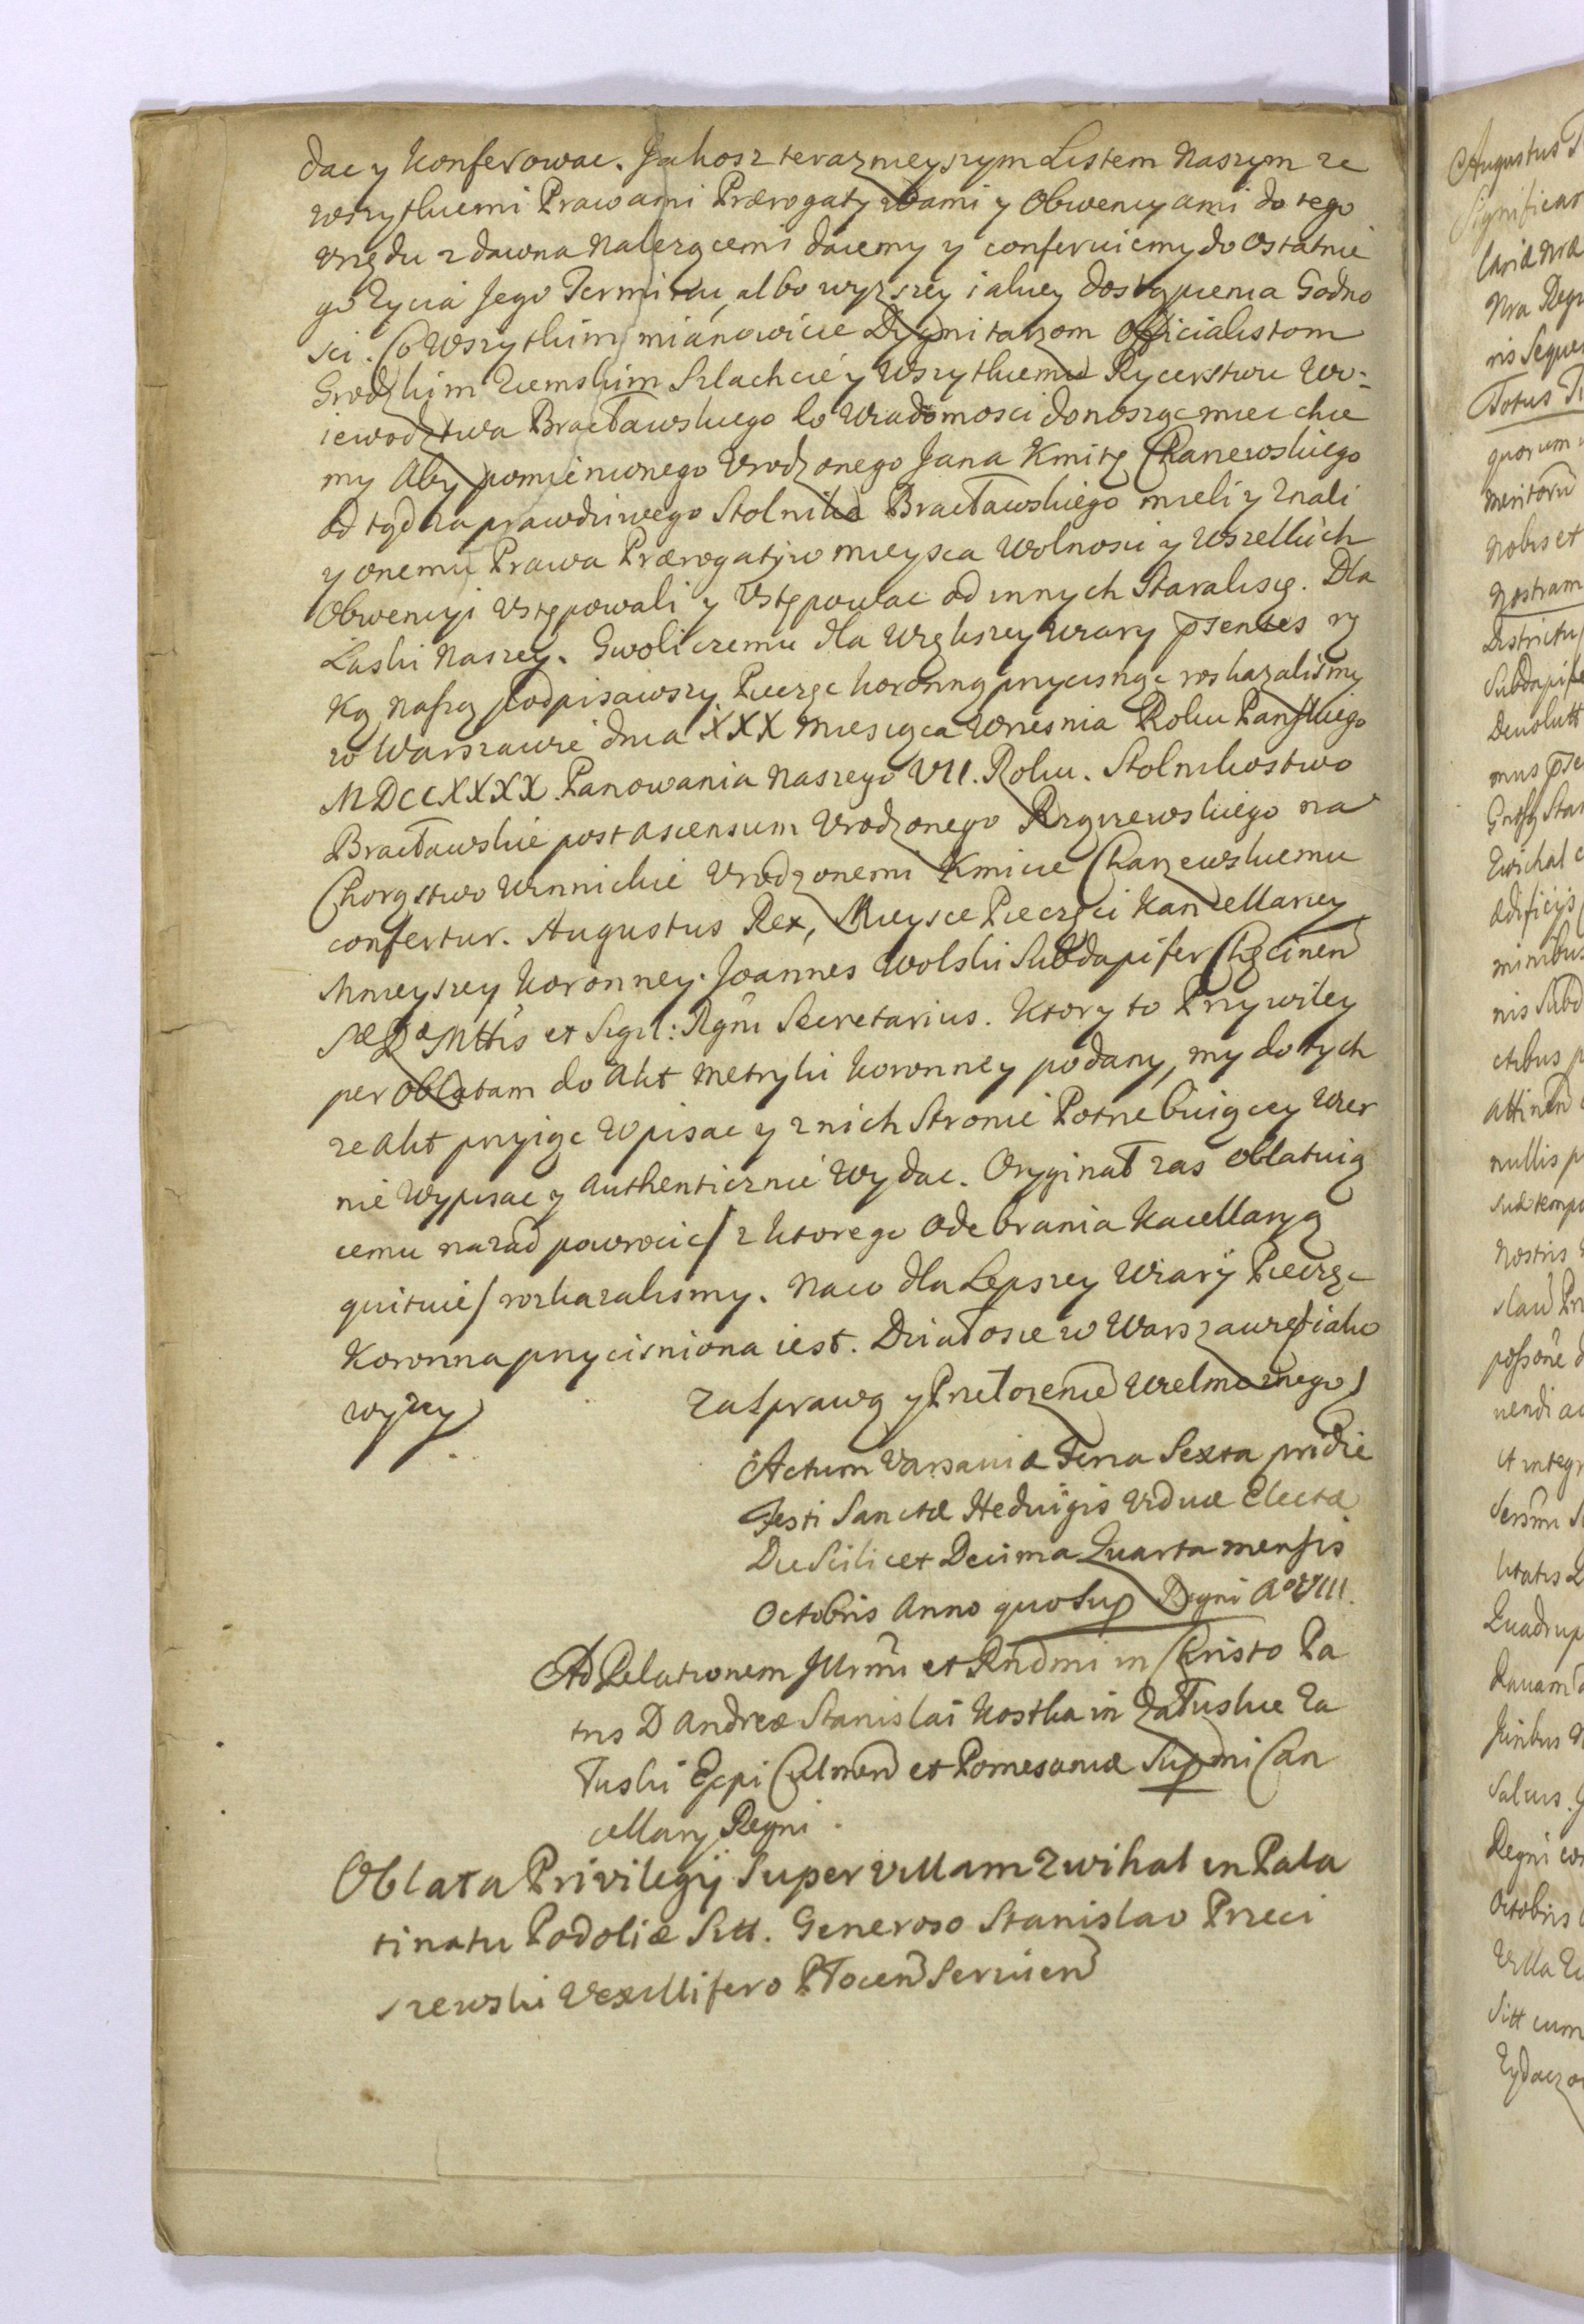 dac y konferowac. Jakosz terazmeyszym Listem Naszym ze
wszytkiemi Prawami Prærogatywami y Obwencyami do tego
Vrzędu zdawna Nalezącemi daiemy y conferuiemy do Ostatnie
go Zycia Jego Terminu, albo wyzszey iakiey dostąpienia Godno
sci. Co Wszytkim mianowicie Dygnitarzom Officialistom
Grodzkim Ziemskim Szlachcie y Wszytkiemu Rycerstwu Wo=
iewodztwa Bracławskiego do Wiadomosci donosząc miec chce
my Aby pomienionego Vrodzonego Jana Kmitę Chanewskiego
od tąd za prawdziwego Stolnika Bracławskiego mieli y Znali
y onemu Prawa Prærogatyw mieysca Wolnosci y Wszelkich
Obwencyi Vstępowali y Vstępowac od innych Staralisię. Dla
Łaski Naszey. Gwoli czemu dla Większey Wiary Psentes rę
Ką Naszą podpisawszy Pieczęc koronną przycisnąc roskazalismy
w Warszawie dnia XXX Miesiąca Wrzesnia Roku Panskiego
MDCCXXXX. Panowania Naszego VII. Roku. Stolnikostwo
Bracławskie post Ascensum Vrodzonego Rzyszewskiego na
Chorąstwo Winnickie Vrodzonemi Kmicie Chanewskiemu
confertur. Augustus Rex, Mieysce Pieczęci Kancellaryey
Mnieyszey koronney. Joannes Wolski Subdapifer Chęcinen
SæRæMttis et Sigil: Rgni Secretarius. Ktory to Przywiley
per Oblatam do Akt Metryki koronney podany, my do tych
ze Akt przyiąc Wpisac y z nich Stronie Potrzebuiącey Wier
nie Wypisac y Authenticznie Wydac. Oryginał zas oblatuią
cemu nazad powrocic / z ktorego Odebrania Kacellaryą
quituie / rozkazalismy. Naco dla Lepszey Wiary Pieczęc
Koronna przycisniona iest. Działosie w Warszawie / iako
wyzey / Zasprawą y Przełozenie Wielmoznego /
Actum Varsaviæ Feria Sexta pridie
Festi Sanctæ Hedvigis Viduæ Electæ
Die Scilicet Decima Quarta mensis
Octobris Anno quo Sup Regni Ao VIII.
Ad Relationem Illrmi et Rndmi in Christo Pa
tris D Andreæ Stanislai Kostka in Załuskie Za
łuski Ecpi Culmen et Pomesaniæ Supmi Can
cellary Regni.
Oblata Privilegij Super Villam Zwihal in Pala
tinatu Podoliæ Sitt. Generoso Stanislao Przeci
szewski Vexillifero Płocen Servien